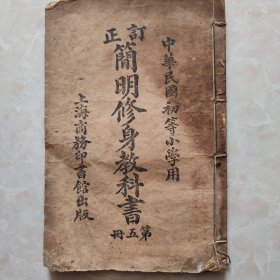 中華民國初等小學用
訂正
簡明修身教科書
第五冊
上海商務印書館出版